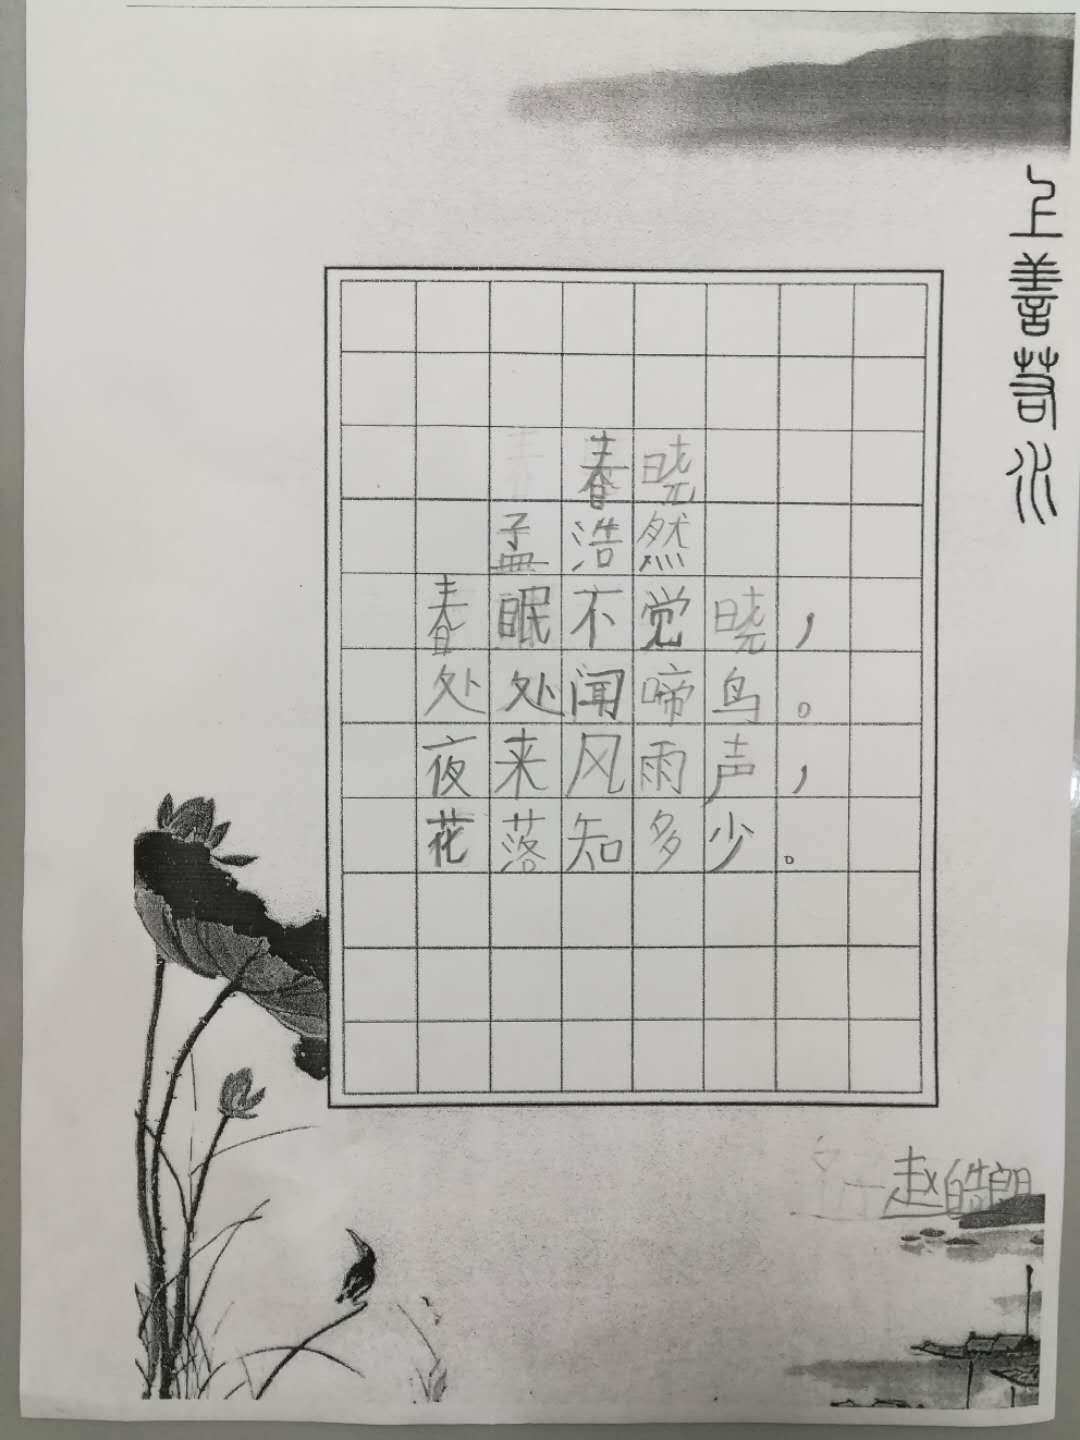 上善若水
春晓
孟浩然
春眠不觉晓，
处处闻啼鸟。
夜来风雨声，
花落知多少。
赵皓朗